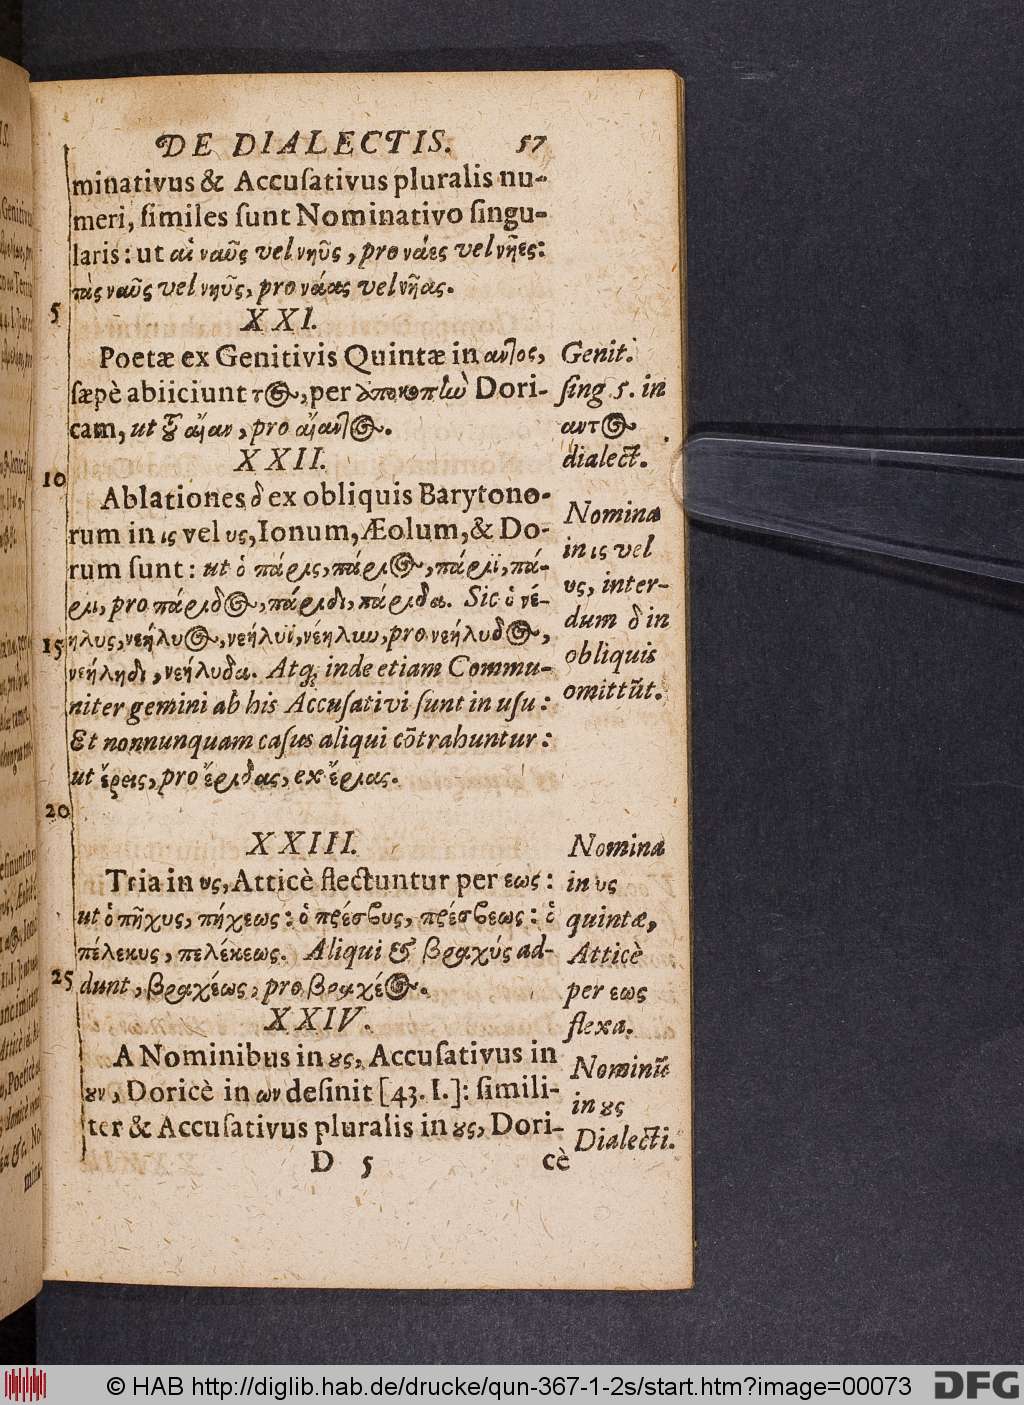 DE DIALECTIS. 57
minativus & Accuſativus pluralis nu-
meri, ſimiles ſunt Nominativo ſingu-
laris: ut αἱ ναῦς vel νηῦς, pro νάες vel νῆες:
τὰς ναῦς vel νηῦς, pro νάας vel νῆας.
5
XXI.
Poetæ ex Genitivis Quintæ in αντος,
ſæpè abiiciunt τος, per ἀποκοπὴν Dori-
cam, ut τοῦ αἴαν, pro αἴαντος.
Genit.
ſing 5. in
αντος
dialect.
XXII.
10
Ablationes δ ex obliquis Barytono-
rum in ις vel υς, Ionum, Æolum, & Do-
rum ſunt: ut ὁ πάρις, πάριος, πάριϊ, πά-
ρι, pro πάριδος, πάριδι, πάριδα. Sic ὁ νέ-
15
ηλυς, νεήλυος, νεήλυϊ, νέηλιν, pro νεήλυδος,
νεήληδι, νεήλυδα. Atq; inde etiam Commu-
niter gemini ab his Accuſativi ſunt in uſu:
Et nonnunquam caſus aliqui cõtrahuntur:
ut ἔρεις, pro ἔριδας, ex ἔριας.
Nomina
in ις vel
υς, inter-
dum δ in
obliquis
omittũt.
20
XXIII.
Tria in υς, Atticè flectuntur per εως:
ut ὁ πῆχυς, πήχεως: ὁ πρέσβυς, πρέσβεως: ὁ
πέλεκυς, πελέκεως. Aliqui & βραχύς ad-
25
dunt, βραχέως, pro βραχέος.
Nomina
in υς
quintæ,
Atticè
per εως
flexa.
XXIV.
A Nominibus in ους, Accuſativus in
ουν, Doricè in ων deſinit [43. I.]: ſimili-
ter & Accuſativus pluralis in ους, Dori-
D 5 cè
Nominũ
in ους
Dialecti.
© HAB http://diglib.hab.de/drucke/qun-367-1-2s/start.htm?image=00073 DFG